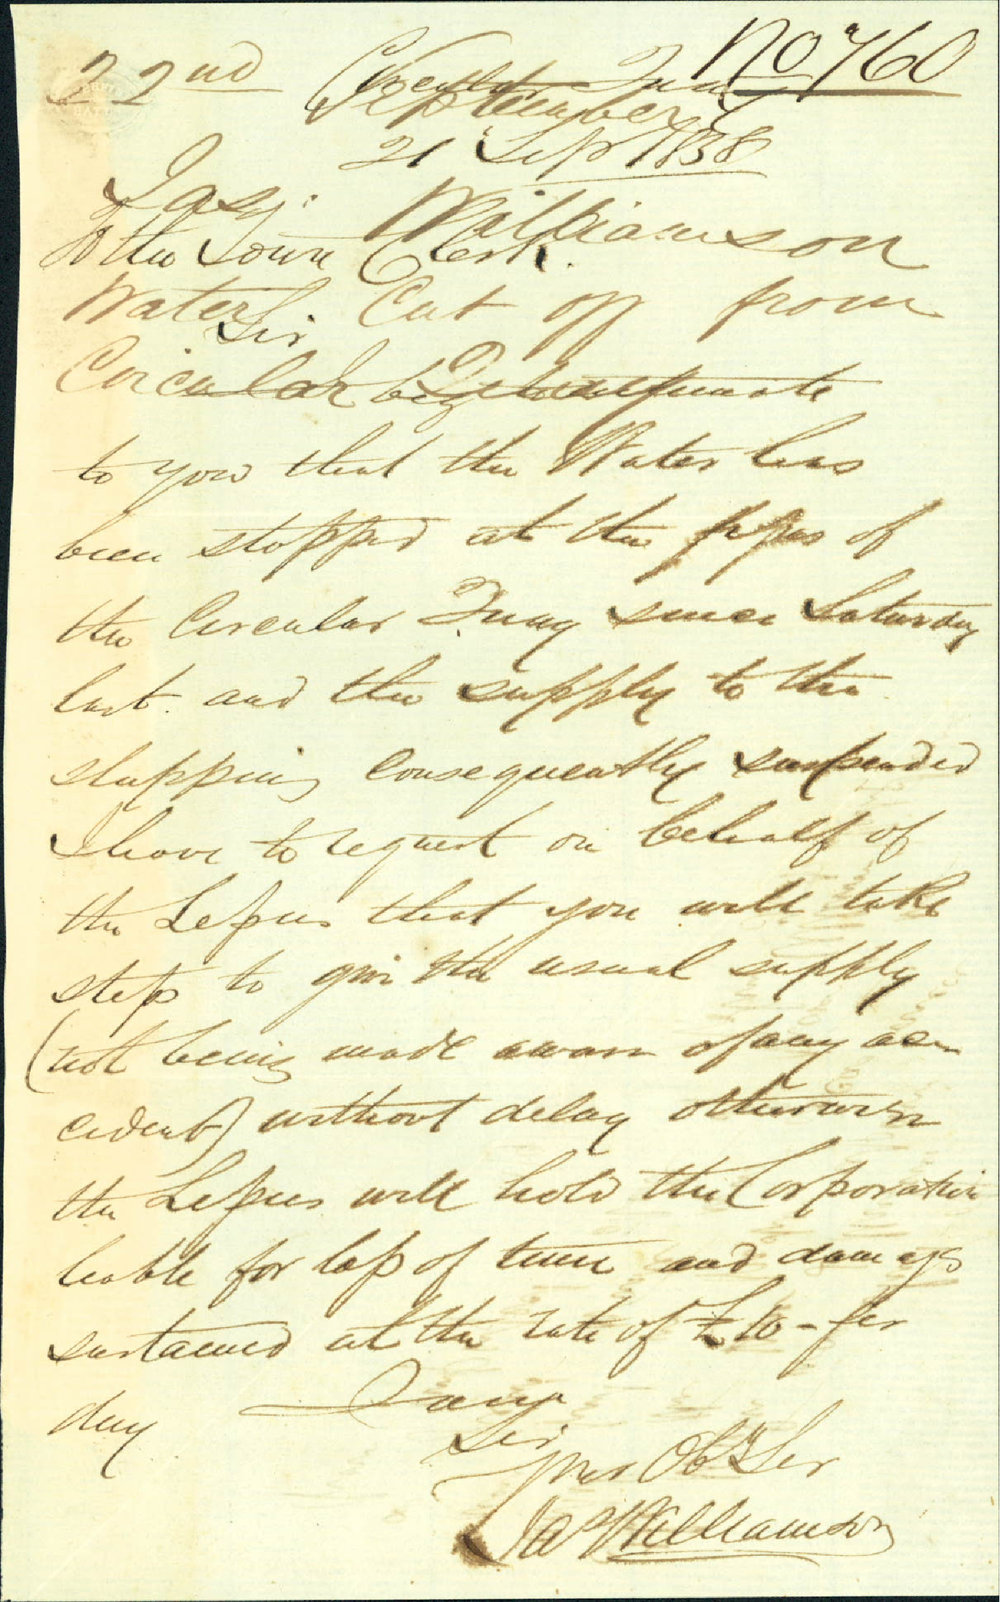 No 760
22nd September
Circular Quay
21 Sepr 1858
Jas. Williamson
To the Town Clerk.
Water Cut off from
Sir
Circular Quay
I beg to intimate
to you that the Water has
been stopped at the pipes of
the Circular Quay since Saturday
last. and the supply to the
shipping consequently suspended
I have to request on behalf of
the Lessees that you will take
steps to give the usual supply
(not being made aware of any ac-
cident) without delay otherwise
the Lessees will hold the Corporation
liable for loss of time and damage
sustained at the rate of £10 - per
day
I am
Sir
Your Obt Ser
Jas Williamson